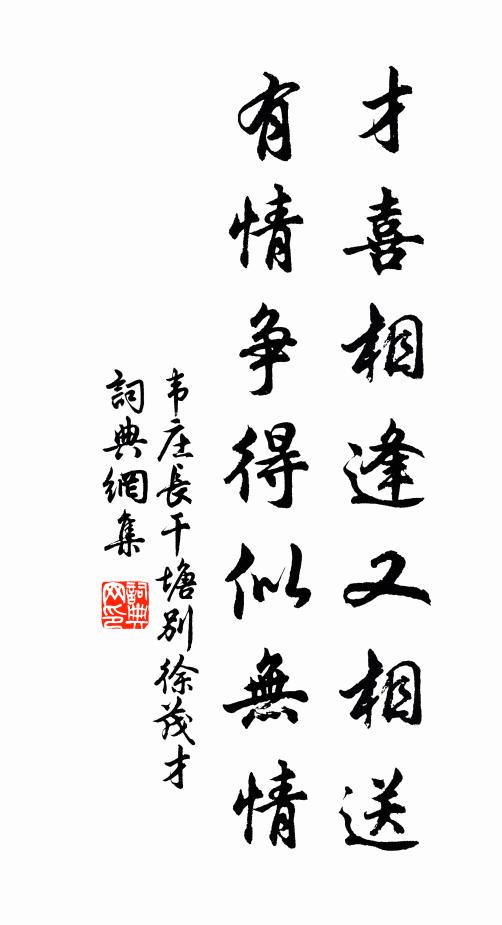 才喜相逢又相送
有情争得似無情
韦庄長干塘别徐茂才
詞典網集
詞典
网印